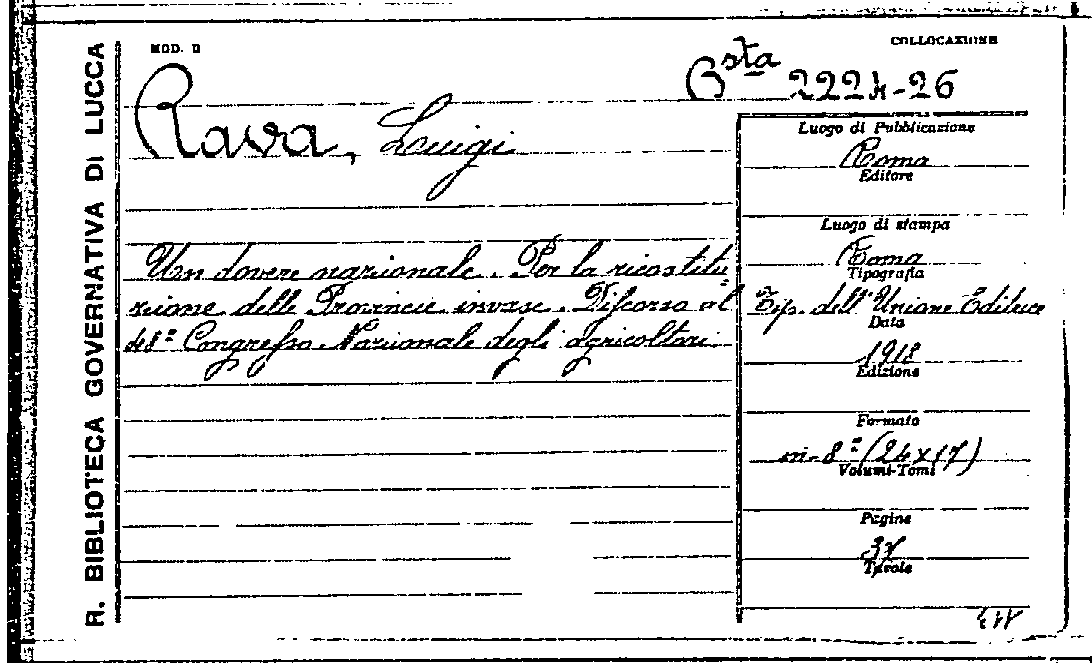 R. BIBLIOTECA GOVERNATIVA DI LUCCA
MOD. B
COLLOCAZIONE
Bsta 2224-26
Rava, Luigi
Un dovere nazionale. Per la ricostitu
zione delle Provincie invase. Discorso al
48º Congresso Nazionale degli agricoltori
Luogo di Pubblicazione
Roma
Editore
Luogo di stampa
Roma
Tipografia
Tip. dell'Unione Editrice
Data
1918
Edizione
Formato
in-8º (24x17)
Volumi-Tomi
Pagine
37
Tavole